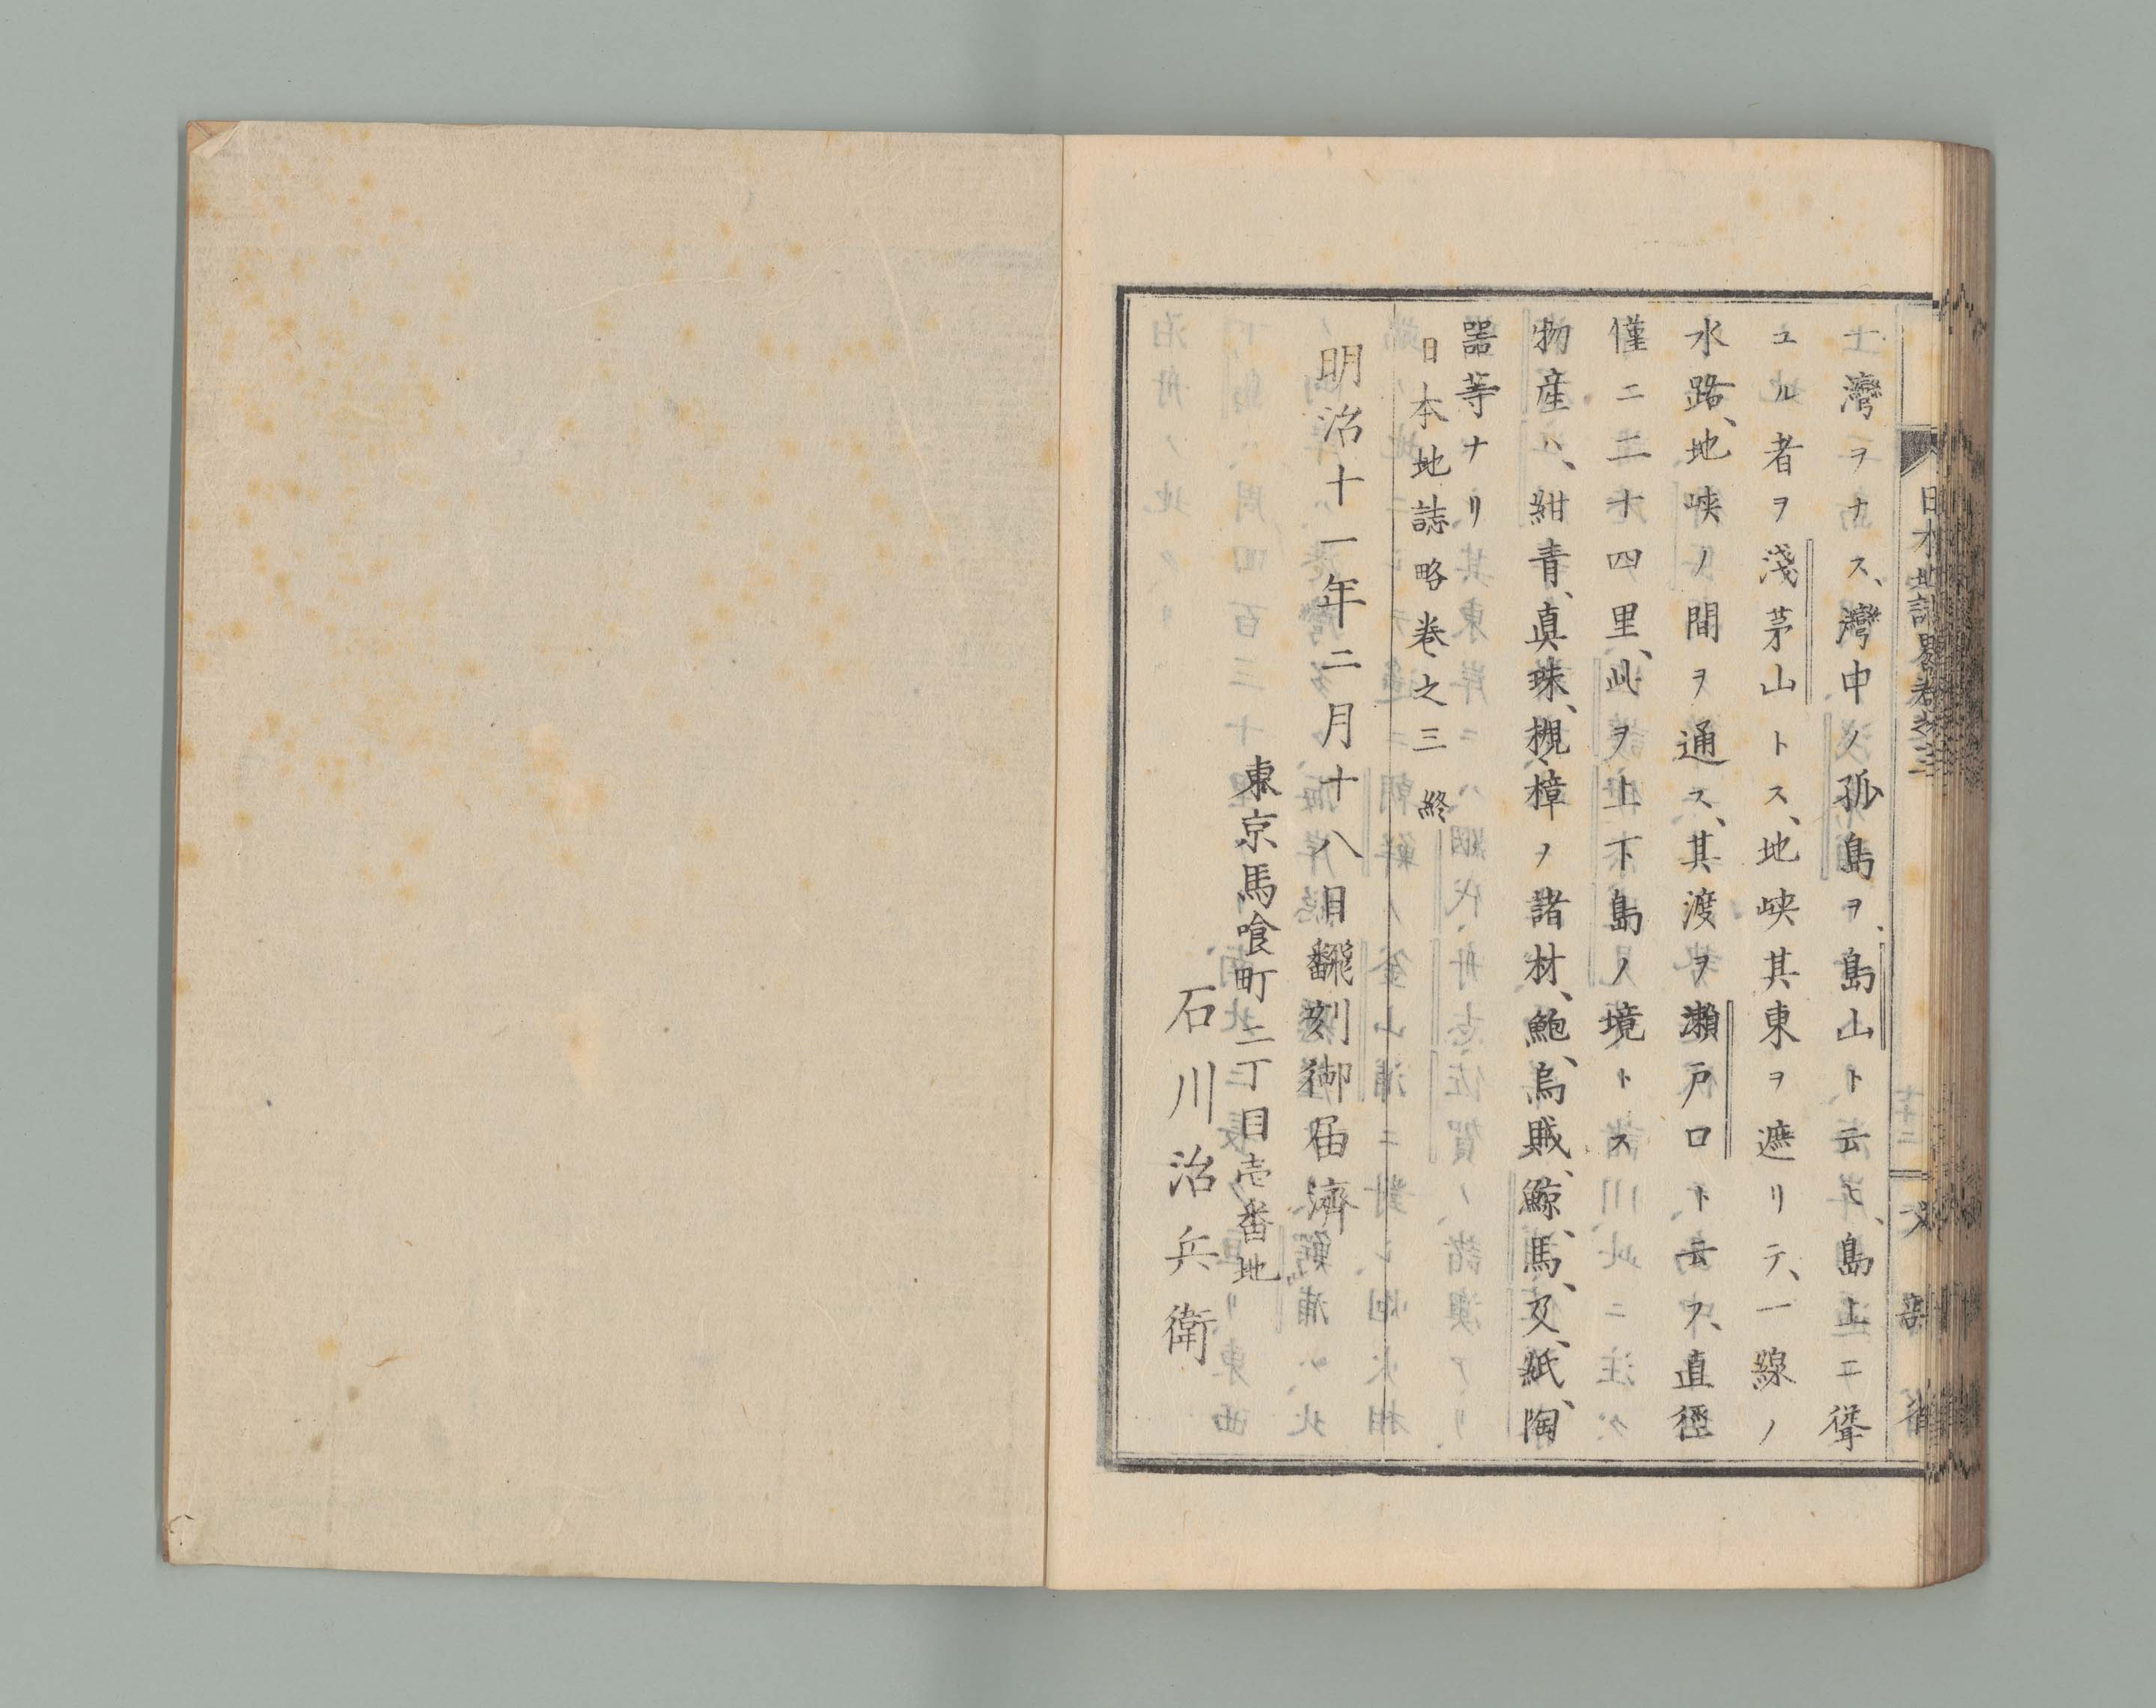 日本地誌略卷之三
文部省
灣ヲナス、灣中ノ孤島ヲ、島山ト云フ、島上ニ聳
ユル者ヲ淺茅山トス、地峡其東ヲ遮リテ、一線ノ
水路、地峡ノ間ヲ通ス、其渡ヲ瀬戸口ト云フ、直徑
僅ニ二十四里、此ヲ上下島ノ境トス
物産ハ、紺青、真珠、槻、樟ノ諸材、鮑、烏賊、鯨、馬、及、紙、陶
器等ナリ
日本地誌略卷之三 終
明治十一年二月十八日飜刻御届濟
東京馬喰町二丁目壱番地
石川治兵衛